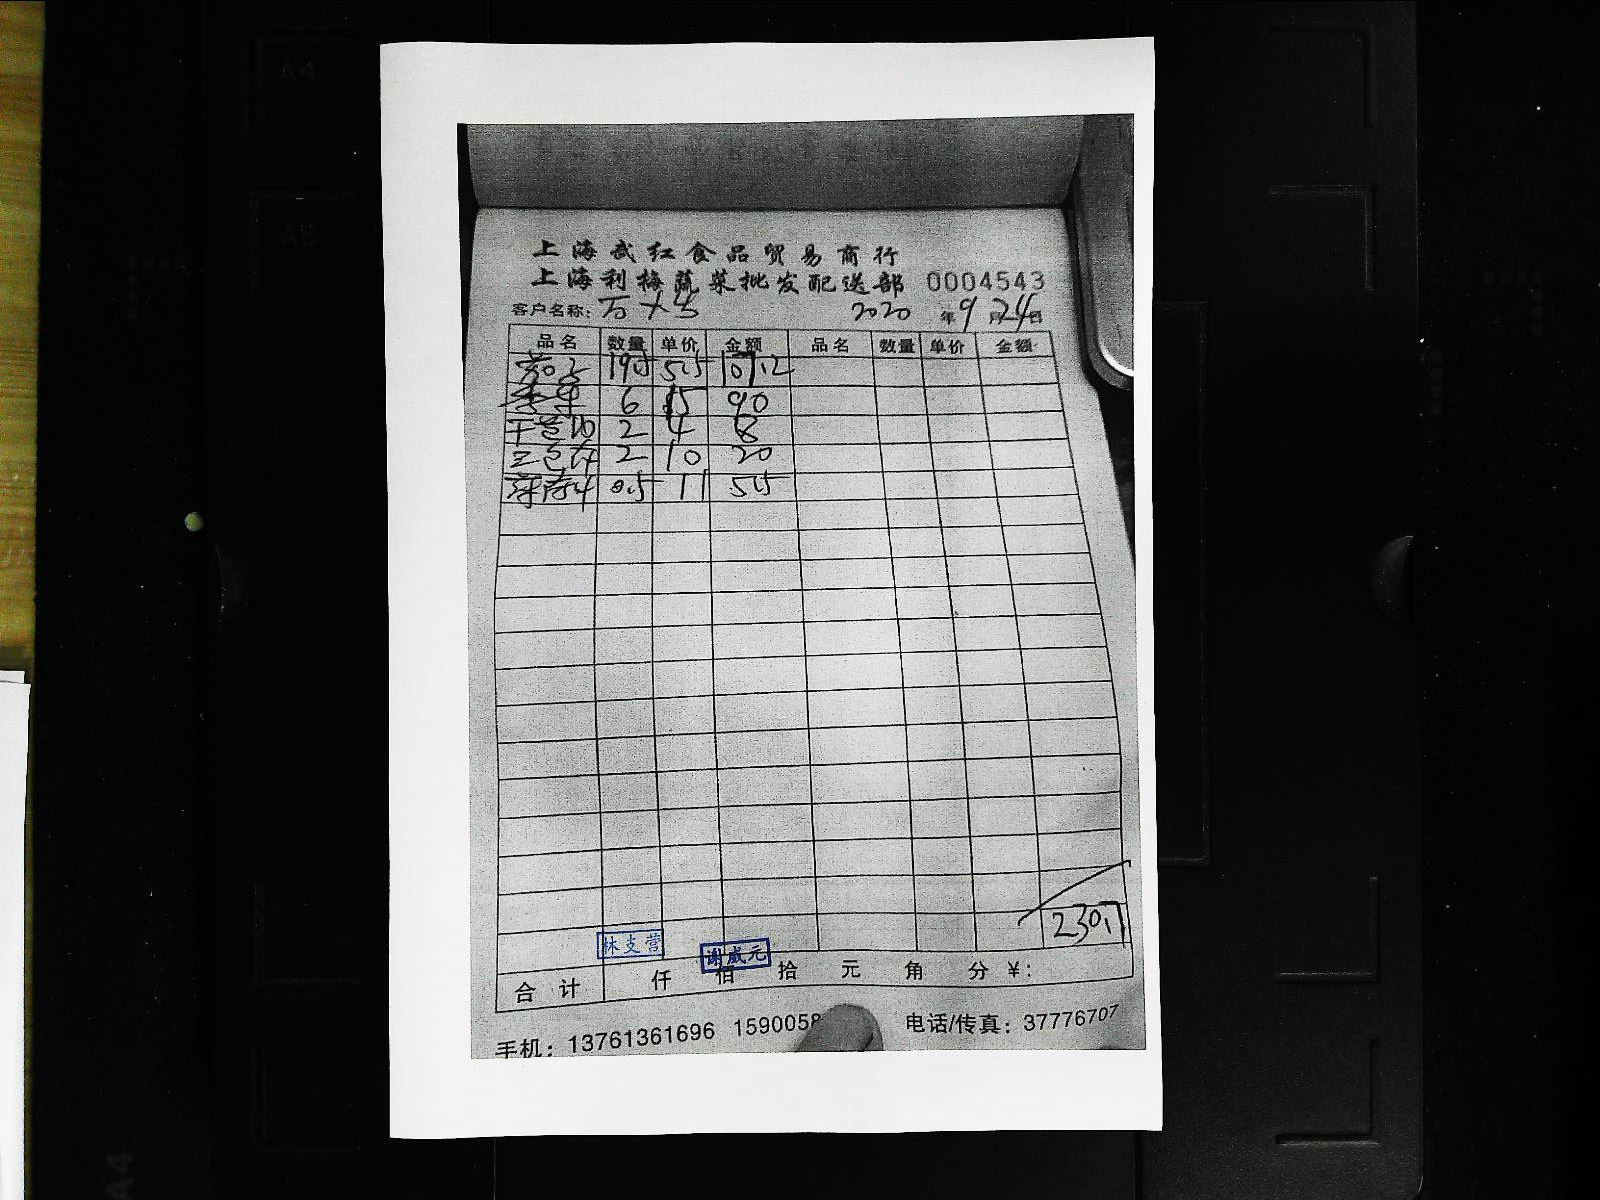 A4
A5
上海武红食品贸易商行
上海利梅蔬菜批发配送部 0004543
客户名称: 2020 年 9 月 24 日
品名 数量 单价 金额 品名 数量 单价 金额
19.5 5.5 107.2
6 15 90
2 4 8
2 10 20
0.5 11 5.5
230.7
林支营
谢咸元
合计 仟 佰 拾 元 角 分 ¥:
手机: 13761361696 1590058 电话/传真: 37776707
A4